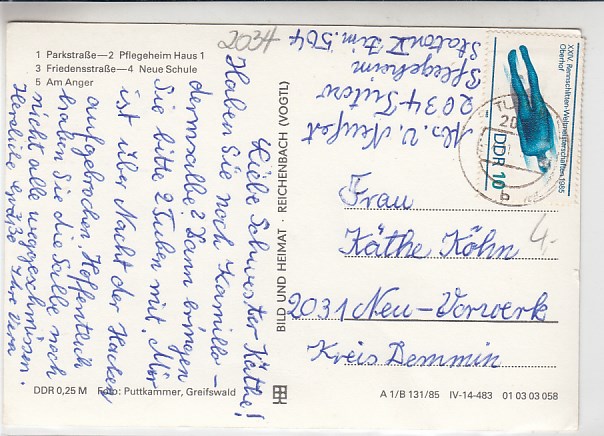 2034
1 Parkstraße—2 Pflegeheim Haus 1
3 Friedensstraße—4 Neue Schule
5 Am Anger
Liebe Schwester Käthe!
Haben Sie noch Kamillo-
dermsalbe? Dann bringen
Sie bitte 2 Tuben mit. Mir
ist über Nacht der Hacken
aufgebrochen. Hoffentlich
haben Sie die Salbe noch
nicht alle weggeschmissen.
Herzliche Grüße Ihre Vera
DDR 0,25 M Foto: Puttkammer, Greifswald
BILD UND HEIMAT · REICHENBACH (VOGTL)
Abs. V. Neufest
2034 Tutow
Pflegeheim
Station II Zim. 564
XXIV. Rennschlitten-Weltmeisterschaften 1985
Oberhof
DDR 10
TU
20
b
4.-
Frau
Käthe Köhn
2031 Neu-Vorwerk
Kreis Demmin
A 1/B 131/85 IV-14-483 01 03 03 058